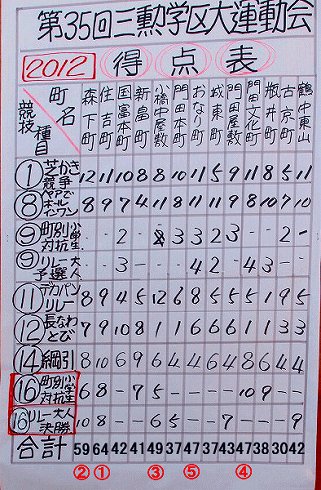 第35回三勲学区大運動会
2012 得点表
町名 競技種目 森下町 住吉町 国富本町 新畠町 小橋中屋敷 門田本町 おなり町 城東町 門田屋敷 門田文化町 瓶井町 古京町 鶴中東山
① 芝かき競争 12 11 10 8 8 10 11 5 9 11 8 5 11
⑧ ペアでホールインワン 8 9 7 4 11 8 11 11 9 8 10 7 10
⑨ 町別小学生対抗 - - 2 - 3 3 2 3 - - 2 -
⑨ リレー大人予選 - - 3 - - - 4 2 - 4 3 - -
⑪ デカパンリレー 8 9 4 5 12 6 8 5 5 5 1 9 5
⑫ 長なわとび 7 9 10 8 1 1 6 6 6 1 1 3 3
⑭ 綱引 8 10 6 9 6 4 4 6 4 8 6 4 4
⑯ 町別小学生対抗 6 8 - 7 5 - - - - 10 9 - -
⑯ リレー大人決勝 10 8 - - 6 5 - - 7 - - - 9
合計 59 64 42 41 49 37 47 37 43 47 38 30 42
② ① ③ ⑤ ④